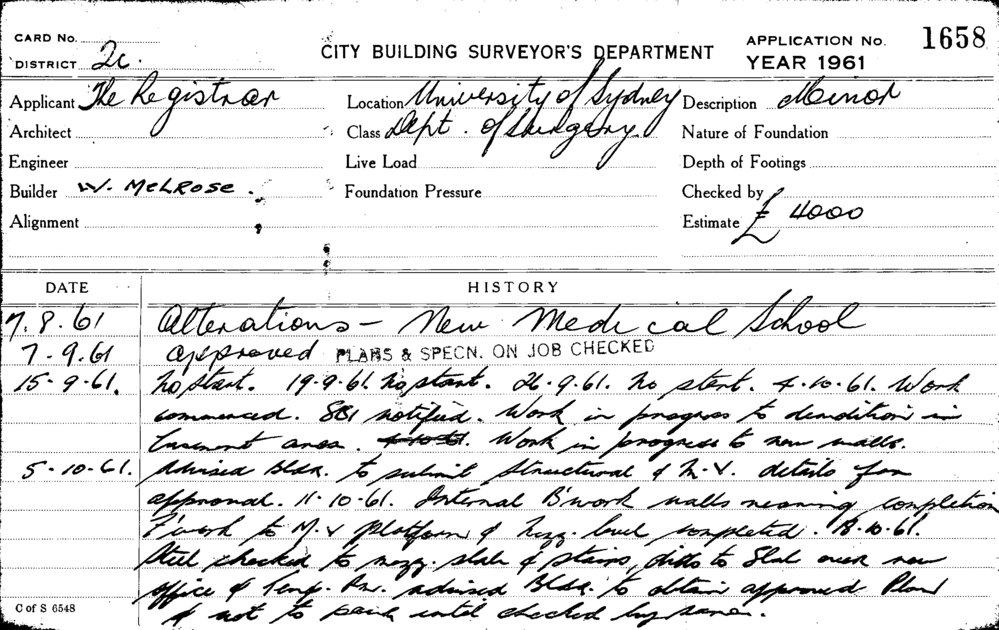 CARD No.
CITY BUILDING SURVEYOR'S DEPARTMENT
APPLICATION No. 1658
DISTRICT 2c.
YEAR 1961
Applicant The Registrar
Location University of Sydney
Description Minor
Architect
Class Dept. of Surgery
Nature of Foundation
Engineer
Live Load
Depth of Footings
Builder W. MELROSE.
Foundation Pressure
Checked by
Alignment
Estimate £ 4000
DATE HISTORY
7.8.61 Alterations - New Medical School
7-9.61 approved PLANS & SPECN. ON JOB CHECKED
15-9-61. No start. 19-9-61. No start. 26-9-61. No start. 4-10-61. Work
commenced. SBI notified. Work in progress to demolition in
basement area. 4-10-61. Work in progress to new walls.
5-10-61. Advised Bldr. to submit structural & M.V. details for
approval. 11-10-61. Internal B'work walls nearing completion
F'work to M.V platform & mezz. level completed. 18-10-61.
Steel checked to mezz. slab & stairs, ditto to slab over new
office & advised Bldr. to obtain approved Plan
& not to until checked by same.
C of S 6548